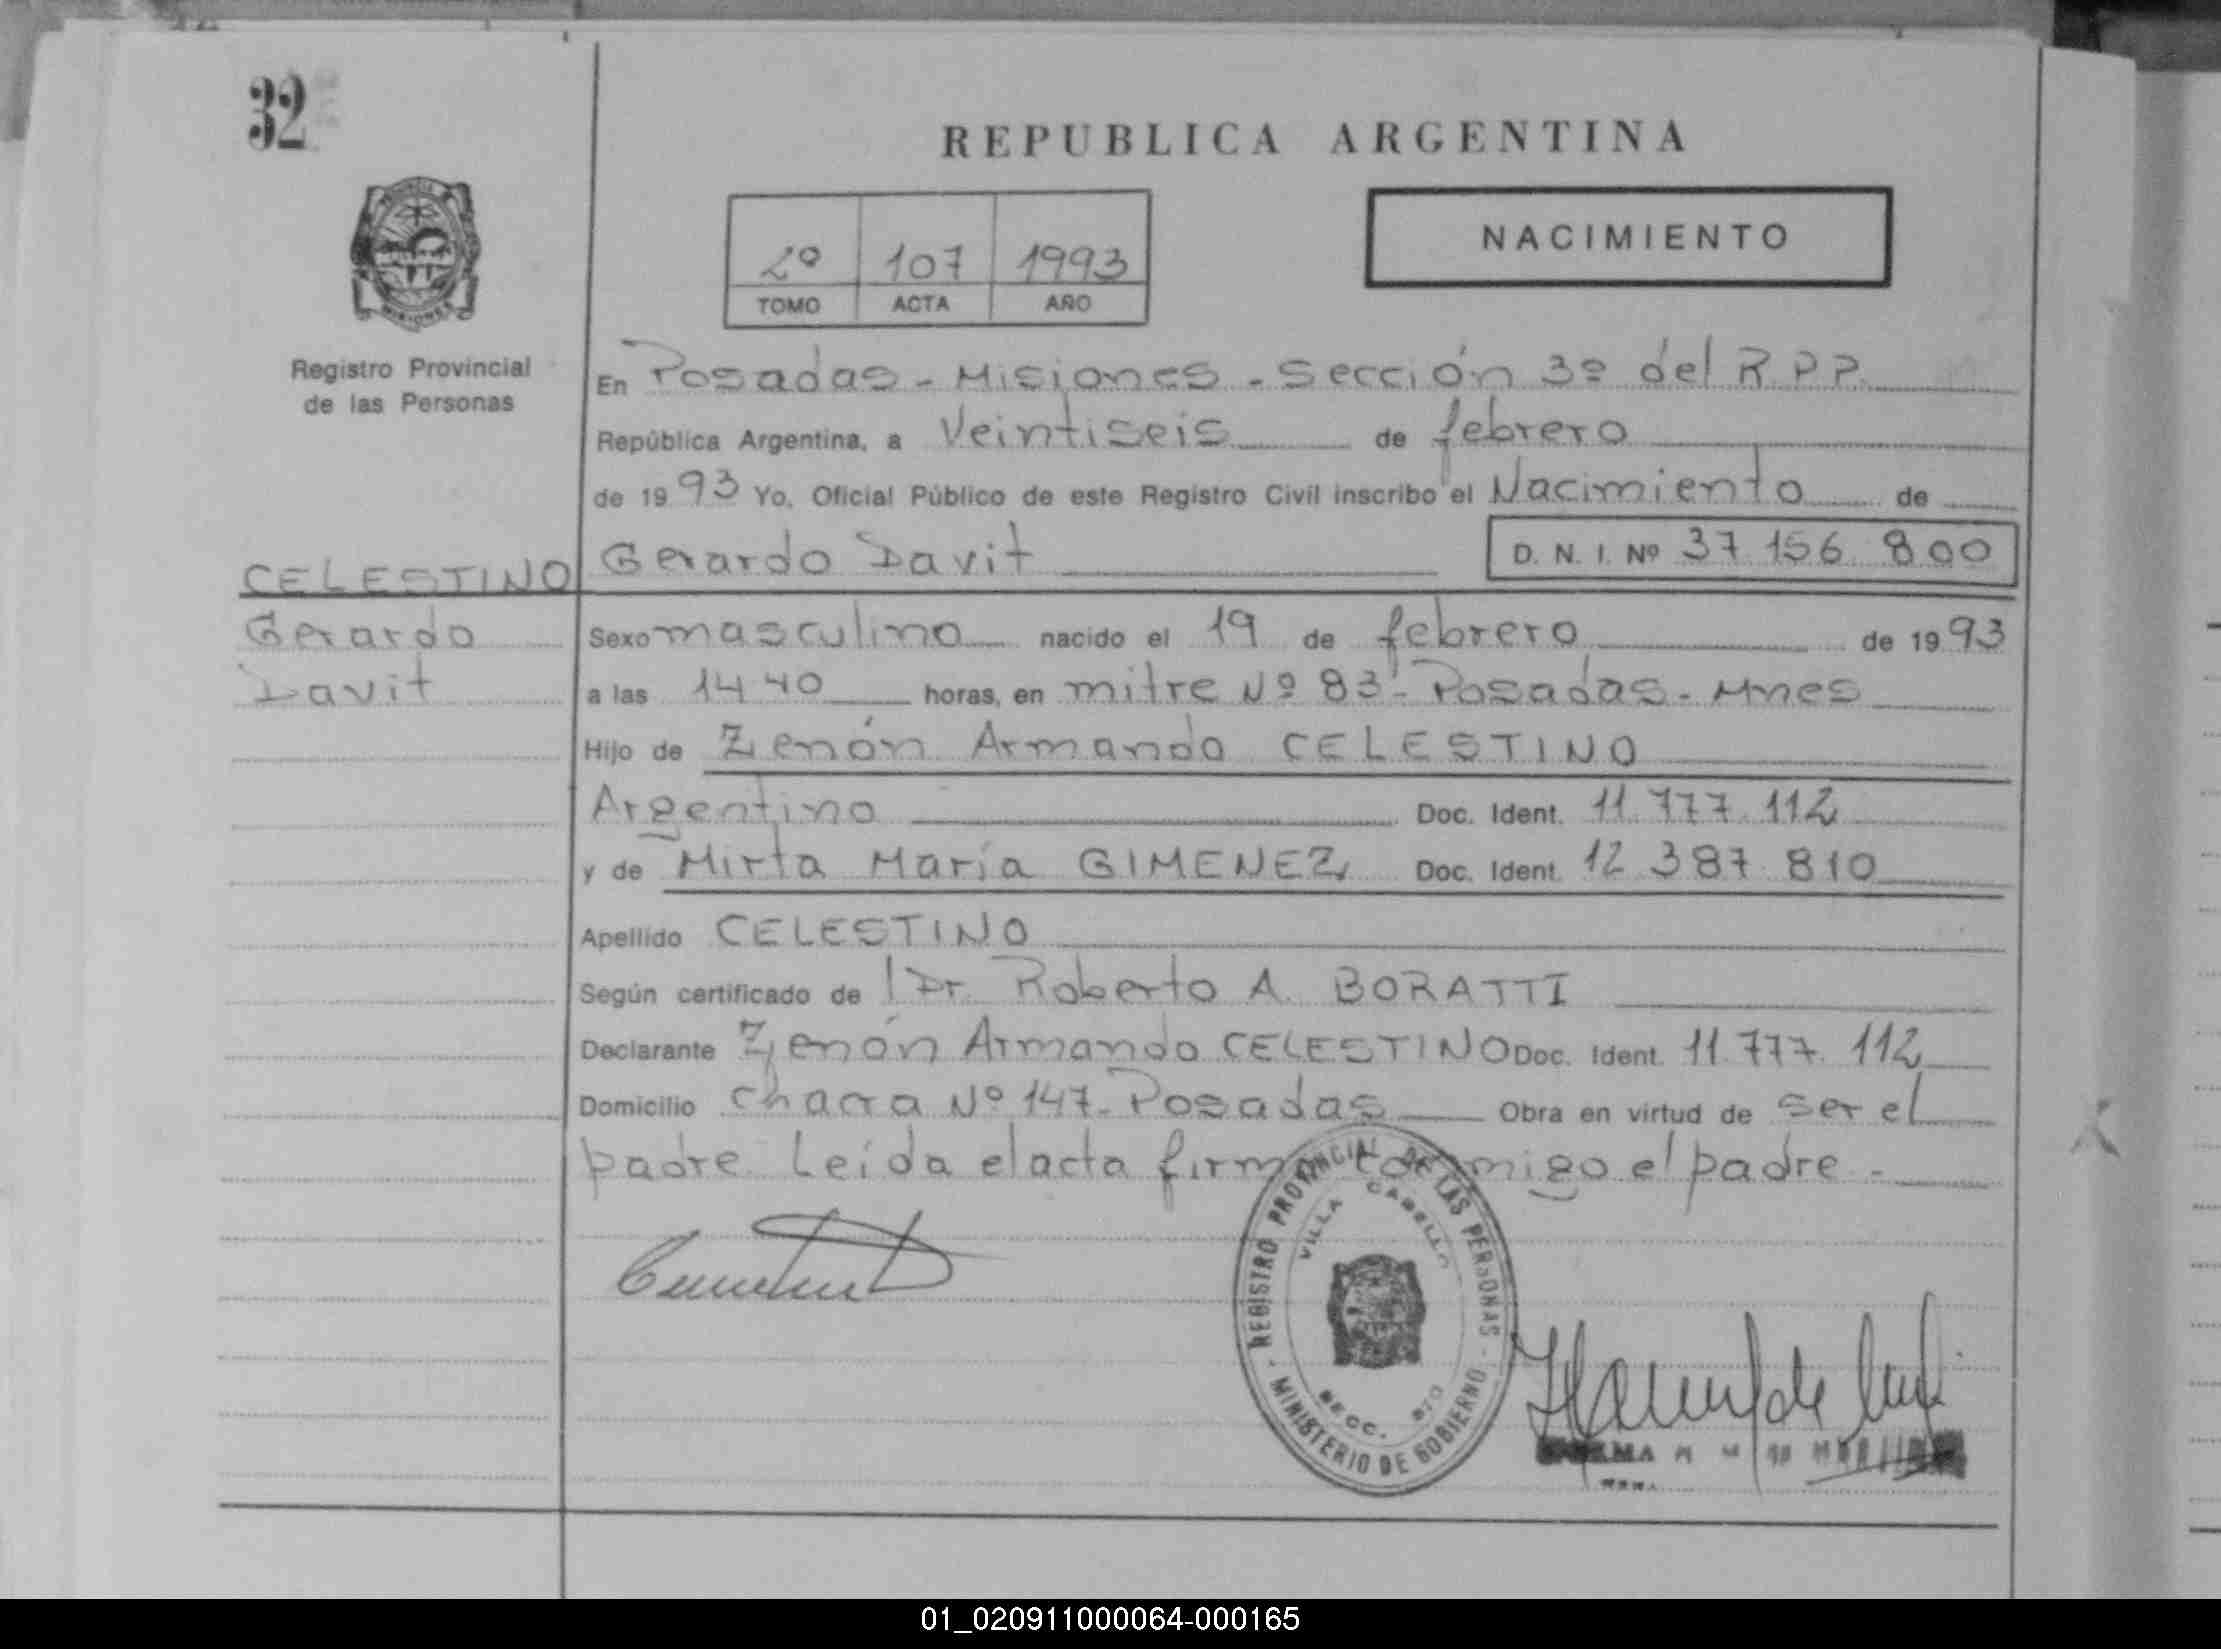 32
REPUBLICA ARGENTINA
NACIMIENTO
2º 107 1993
TOMO ACTA AÑO
Registro Provincial
de las Personas
En Posadas - Misiones - Sección 3º del R.P.P.
República Argentina, a Veintiseis de febrero
de 1993 Yo, Oficial Público de este Registro Civil inscribo el Nacimiento de
CELESTINO Gerardo Davit D. N. I. Nº 37.156.800
Gerardo
Davit
Sexo masculino nacido el 19 de febrero de 1993
a las 14 40 horas, en mitre Nº 83 - Posadas - Mnes
Hijo de Zenón Armando CELESTINO
Argentino Doc. Ident. 11.777.112
y de Mirta María GIMENEZ Doc. Ident. 12.387.810
Apellido CELESTINO
Según certificado de l Dr. Roberto A. BORATTI
Declarante Zenón Armando CELESTINO Doc. Ident. 11.777.112
Domicilio chacra Nº 147 - Posadas Obra en virtud de ser el
padre. Leída el acta firma conmigo el padre.-
REGISTRO PROVINCIAL DE LAS PERSONAS
VILLA CABELLO
SECC.
MINISTERIO DE GOBIERNO
01_020911000064-000165